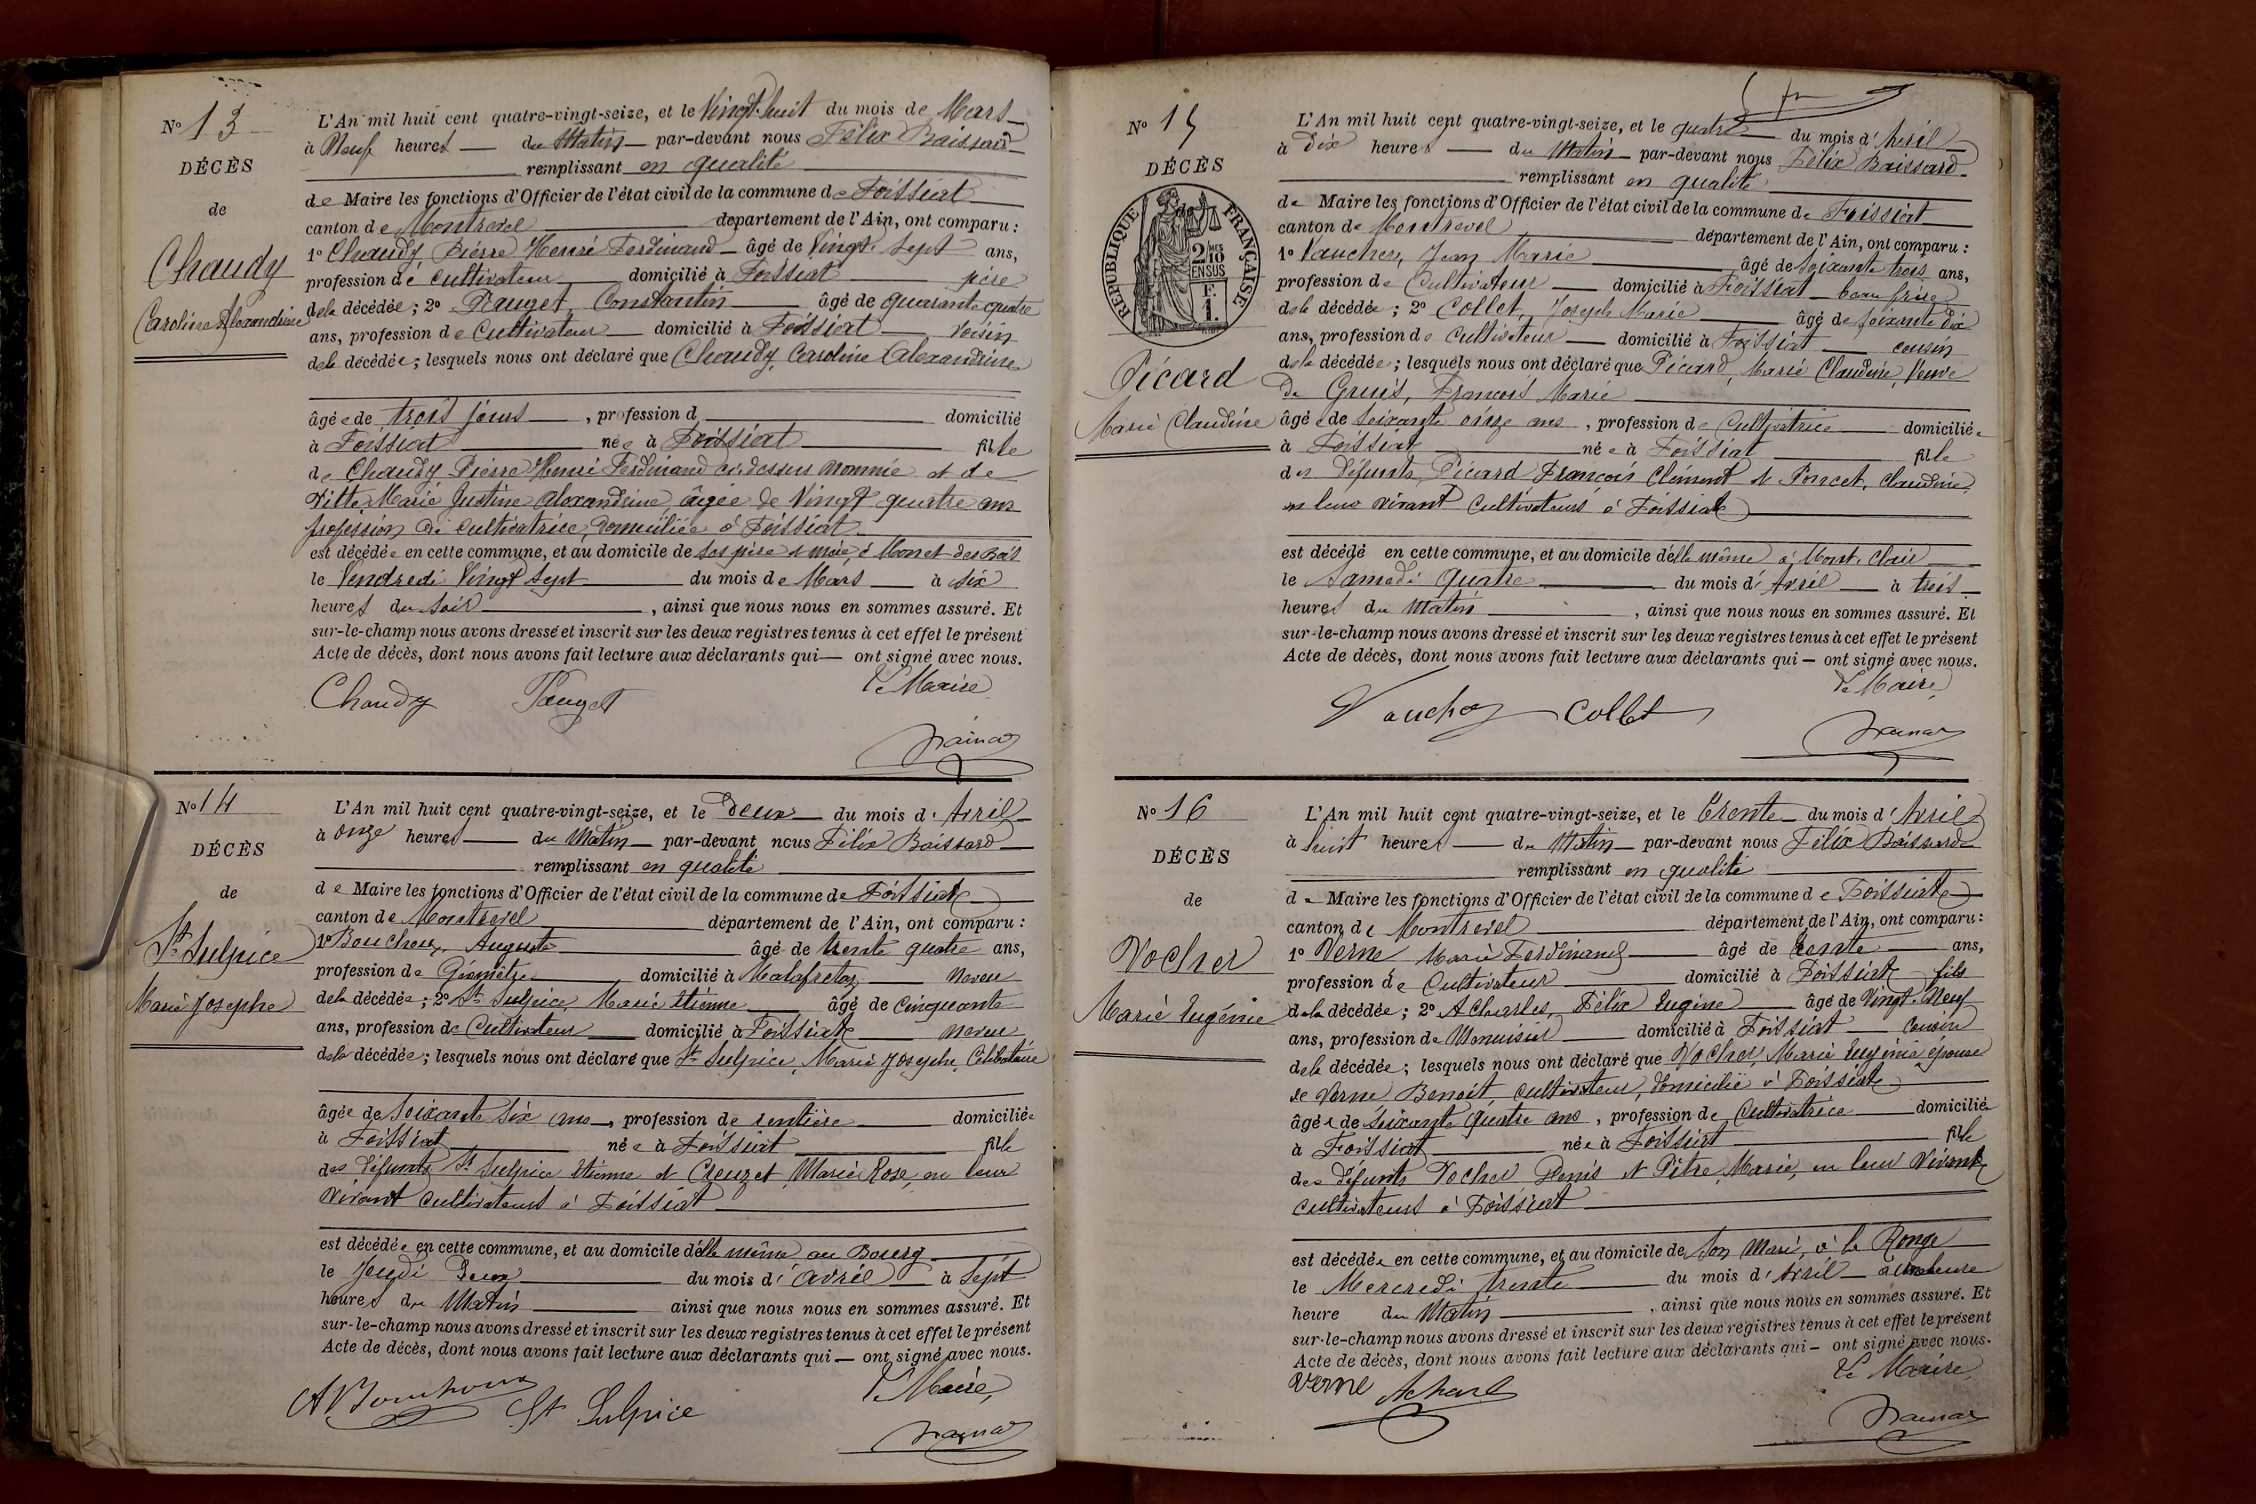 N° 13
DÉCÈS
de
Chaudy
Caroline Alexandrine
L'An mil huit cent quatre-vingt-seize, et le Vingt huit du mois de Mars
à Neuf heures du Matin par-devant nous Félix Baissard
remplissant en qualité
de Maire les fonctions d'Officier de l'état civil de la commune de Foissiat
canton de Montrevel département de l'Ain, ont comparu :
1° Chaudy Pierre Henri Ferdinand âgé de Vingt sept ans,
profession de cultivateur domicilié à Foissiat père
de la décédée ; 2° Pauget Constantin âgé de quarante quatre
ans, profession de Cultivateur domicilié à Foissiat voisin
de la décédée ; lesquels nous ont déclaré que Chaudy, Caroline Alexandrine
âgée de trois jours , profession d domicilié
à Foissiat née à Foissiat fille
de Chaudy Pierre Henri Ferdinand ci-dessus nommé et de
Vitte Marie Justine Alexandrine, âgée de Vingt quatre ans
profession de cultivatrice, domiciliée à Foissiat
est décédée en cette commune, et au domicile de ses père & mère, à Monet des Bois
le Vendredi Vingt Sept du mois de Mars à six
heures du soir , ainsi que nous nous en sommes assuré. Et
sur-le-champ nous avons dressé et inscrit sur les deux registres tenus à cet effet le présent
Acte de décès, dont nous avons fait lecture aux déclarants qui ont signé avec nous.
Le Maire
Chaudy Pauget
N° 14
DÉCÈS
de
St Sulpice
Marie Josephe
L'An mil huit cent quatre-vingt-seize, et le Deux du mois d'Avril
à onze heures du Matin par-devant nous Félix Baissard
remplissant en qualité
de Maire les fonctions d'Officier de l'état civil de la commune de Foissiat
canton de Montrevel département de l'Ain, ont comparu :
1° Bouchoux, Auguste âgé de trente quatre ans,
profession de Géomètre domicilié à Malafretaz neveu
de la décédée ; 2° St Sulpice, Marie Etienne âgé de cinquante
ans, profession de Cultivateur domicilié à Foissiat neveu
de la décédée ; lesquels nous ont déclaré que St Sulpice, Marie Josephe, Célibataire
âgée de soixante six ans , profession de rentière domiciliée
à Foissiat née à Foissiat fille
des défunts St Sulpice Etienne et Creuzet, Marie Rose, en leur
vivant cultivateurs à Foissiat
est décédée en cette commune, et au domicile d'elle même au Bourg
le Jeudi Deux du mois d'avril à sept
heures du Matin ainsi que nous nous en sommes assuré. Et
sur-le-champ nous avons dressé et inscrit sur les deux registres tenus à cet effet le présent
Acte de décès, dont nous avons fait lecture aux déclarants qui ont signé avec nous.
Le Maire,
A Bouchoux St Sulpice
N° 15
DÉCÈS
RÉPUBLIQUE FRANÇAISE
2/10 MES
EN SUS
F.
1.
Picard
Marie Claudine
L'An mil huit cent quatre-vingt-seize, et le quatre du mois d'Avril
à Dix heures du Matin par-devant nous Félix Baissard
remplissant en qualité
de Maire les fonctions d'Officier de l'état civil de la commune de Foissiat
canton de Montrevel département de l'Ain, ont comparu :
1° Vaucher, Jean Marie âgé de soixante trois ans,
profession de Cultivateur domicilié à Foissiat beau frère
de la décédée ; 2° Collet, Joseph Marie âgé de soixante dix
ans, profession de cultivateur domicilié à Foissiat cousin
de la décédée ; lesquels nous ont déclaré que Picard, Marie Claudine, Veuve
de Gruis, François Marie
âgée de soixante onze ans , profession de Cultivatrice domiciliée
à Foissiat née à Foissiat fille
des défunts Picard François Clément & Poncet, Claudine,
en leur vivant Cultivateurs à Foissiat
est décédé en cette commune, et au domicile d'elle même à Mont-Clair
le Samedi Quatre du mois d'Avril à trois
heures du Matin , ainsi que nous nous en sommes assuré. Et
sur-le-champ nous avons dressé et inscrit sur les deux registres tenus à cet effet le présent
Acte de décès, dont nous avons fait lecture aux déclarants qui ont signé avec nous.
Le Maire
Vaucher Collet
N° 16
DÉCÈS
de
Vocher
Marie Eugénie
L'An mil huit cent quatre-vingt-seize, et le Trente du mois d'Avril
à huit heures du Matin par-devant nous Félix Baissard
remplissant en qualité
de Maire les fonctions d'Officier de l'état civil de la commune de Foissiat
canton de Montrevel département de l'Ain, ont comparu :
1° Verne Marie Ferdinand âgé de trente ans,
profession de Cultivateur domicilié à Foissiat fils
de la décédée ; 2° Acharles, Félix Eugène âgé de Vingt-Neuf
ans, profession de Menuisier domicilié à Foissiat cousin
de la décédée ; lesquels nous ont déclaré que Vocher, Marie Eugénie épouse
de Verne Benoit, cultivateur, domicilié à Foissiat
âgée de soixante quatre ans , profession de Cultivatrice domiciliée
à Foissiat née à Foissiat fille
des défunts Vocher Denis & Pitre, Marie, en leur vivant
cultivateurs à Foissiat
est décédée en cette commune, et au domicile de son Mari, à la Ronge
le Mercredi trente du mois d'Avril à une heure
heure du Matin , ainsi que nous nous en sommes assuré. Et
sur-le-champ nous avons dressé et inscrit sur les deux registres tenus à cet effet le présent
Acte de décès, dont nous avons fait lecture aux déclarants qui ont signé avec nous.
Le Maire
Verne